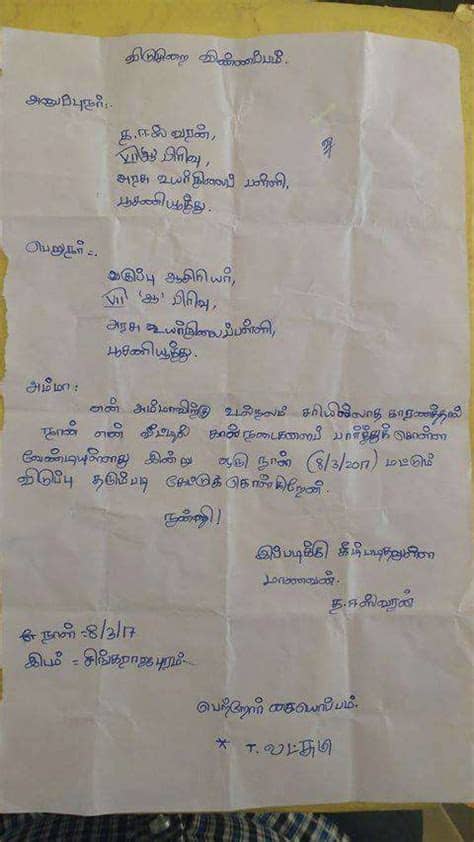 விடுமுறை விண்ணப்பம்.
அனுப்புநர்:-
த.ஈஸ்வரன்,
VII ஆ பிரிவு,
அரசு உயர்நிலைப் பள்ளி,
பூசணியூத்து.
பெறுநர்:-
வகுப்பு ஆசிரியர்,
VII 'ஆ' பிரிவு,
அரசு உயர்நிலைப்பள்ளி,
பூசணியூத்து.
அம்மா:
என் அம்மாவிற்கு உடல்நலம் சரியில்லாத காரணத்தால்
நான் என் வீட்டில் கால்நடைகளைப் பார்த்துக் கொள்ள
வேண்டியுள்ளது இன்று ஒரு நாள் (8/3/2017) மட்டும்
விடுப்பு தரும்படி கேட்டுக் கொள்கிறேன்.
நன்றி!
இப்படிக்கு கீழ்படிதலுள்ள
மாணவன்.
த.ஈஸ்வரன்
நாள் =8/3/17
இடம் = சிங்கராஜபுரம்.
பெற்றோர் கையொப்பம்.
* T. லட்சுமி